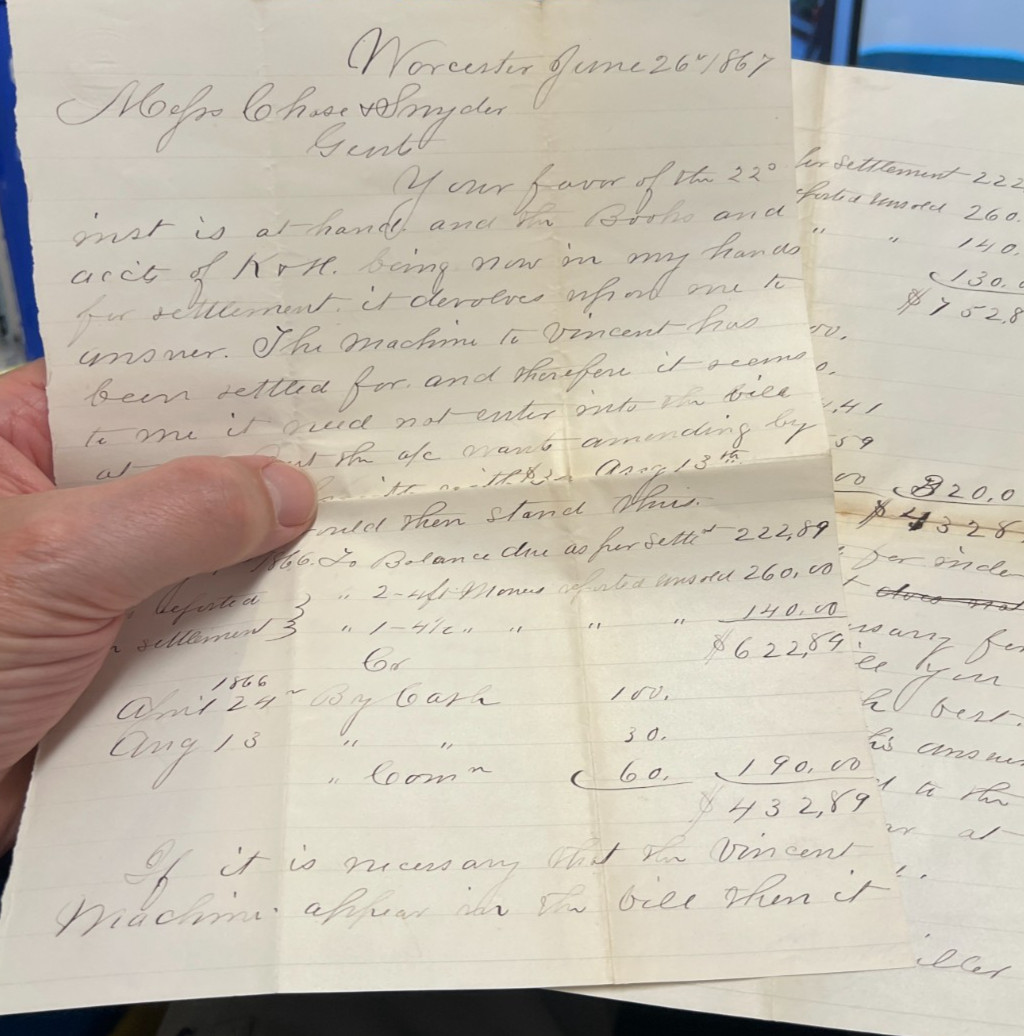 Worcester June 26" 1867
Messrs Chase & Snyder
Gents
Your favor of the 22°
inst is at hand. and the Books and
accts of K & H. being now in my hands
for settlement. it devolves upon me to
answer. The Machine to Vincent has
been settled for. and therefore it seems
to me it need not enter into the bill
at the a/c wants amending by
Aug 13th
would then stand thus.
1866. To Balance due as per Settt 222,89
" reported } " 2-4ft Mowers reported unsold 260.00
settlement } " 1-4½ " " " " 140.00
$622,89
Cr
1866
April 24" By Cash 100.
Aug 13 " " 30.
" Comn 60. 190.00
$432,89
If it is necessary that the Vincent
Machine. appear in the bill then it
per settlement 222
reported unsold 260.
" " 140.
130.0
$752.8
00.
0.
41
59
00 320.0
$4328
for
does not
for
you
best.
his answer
to the
at
iller